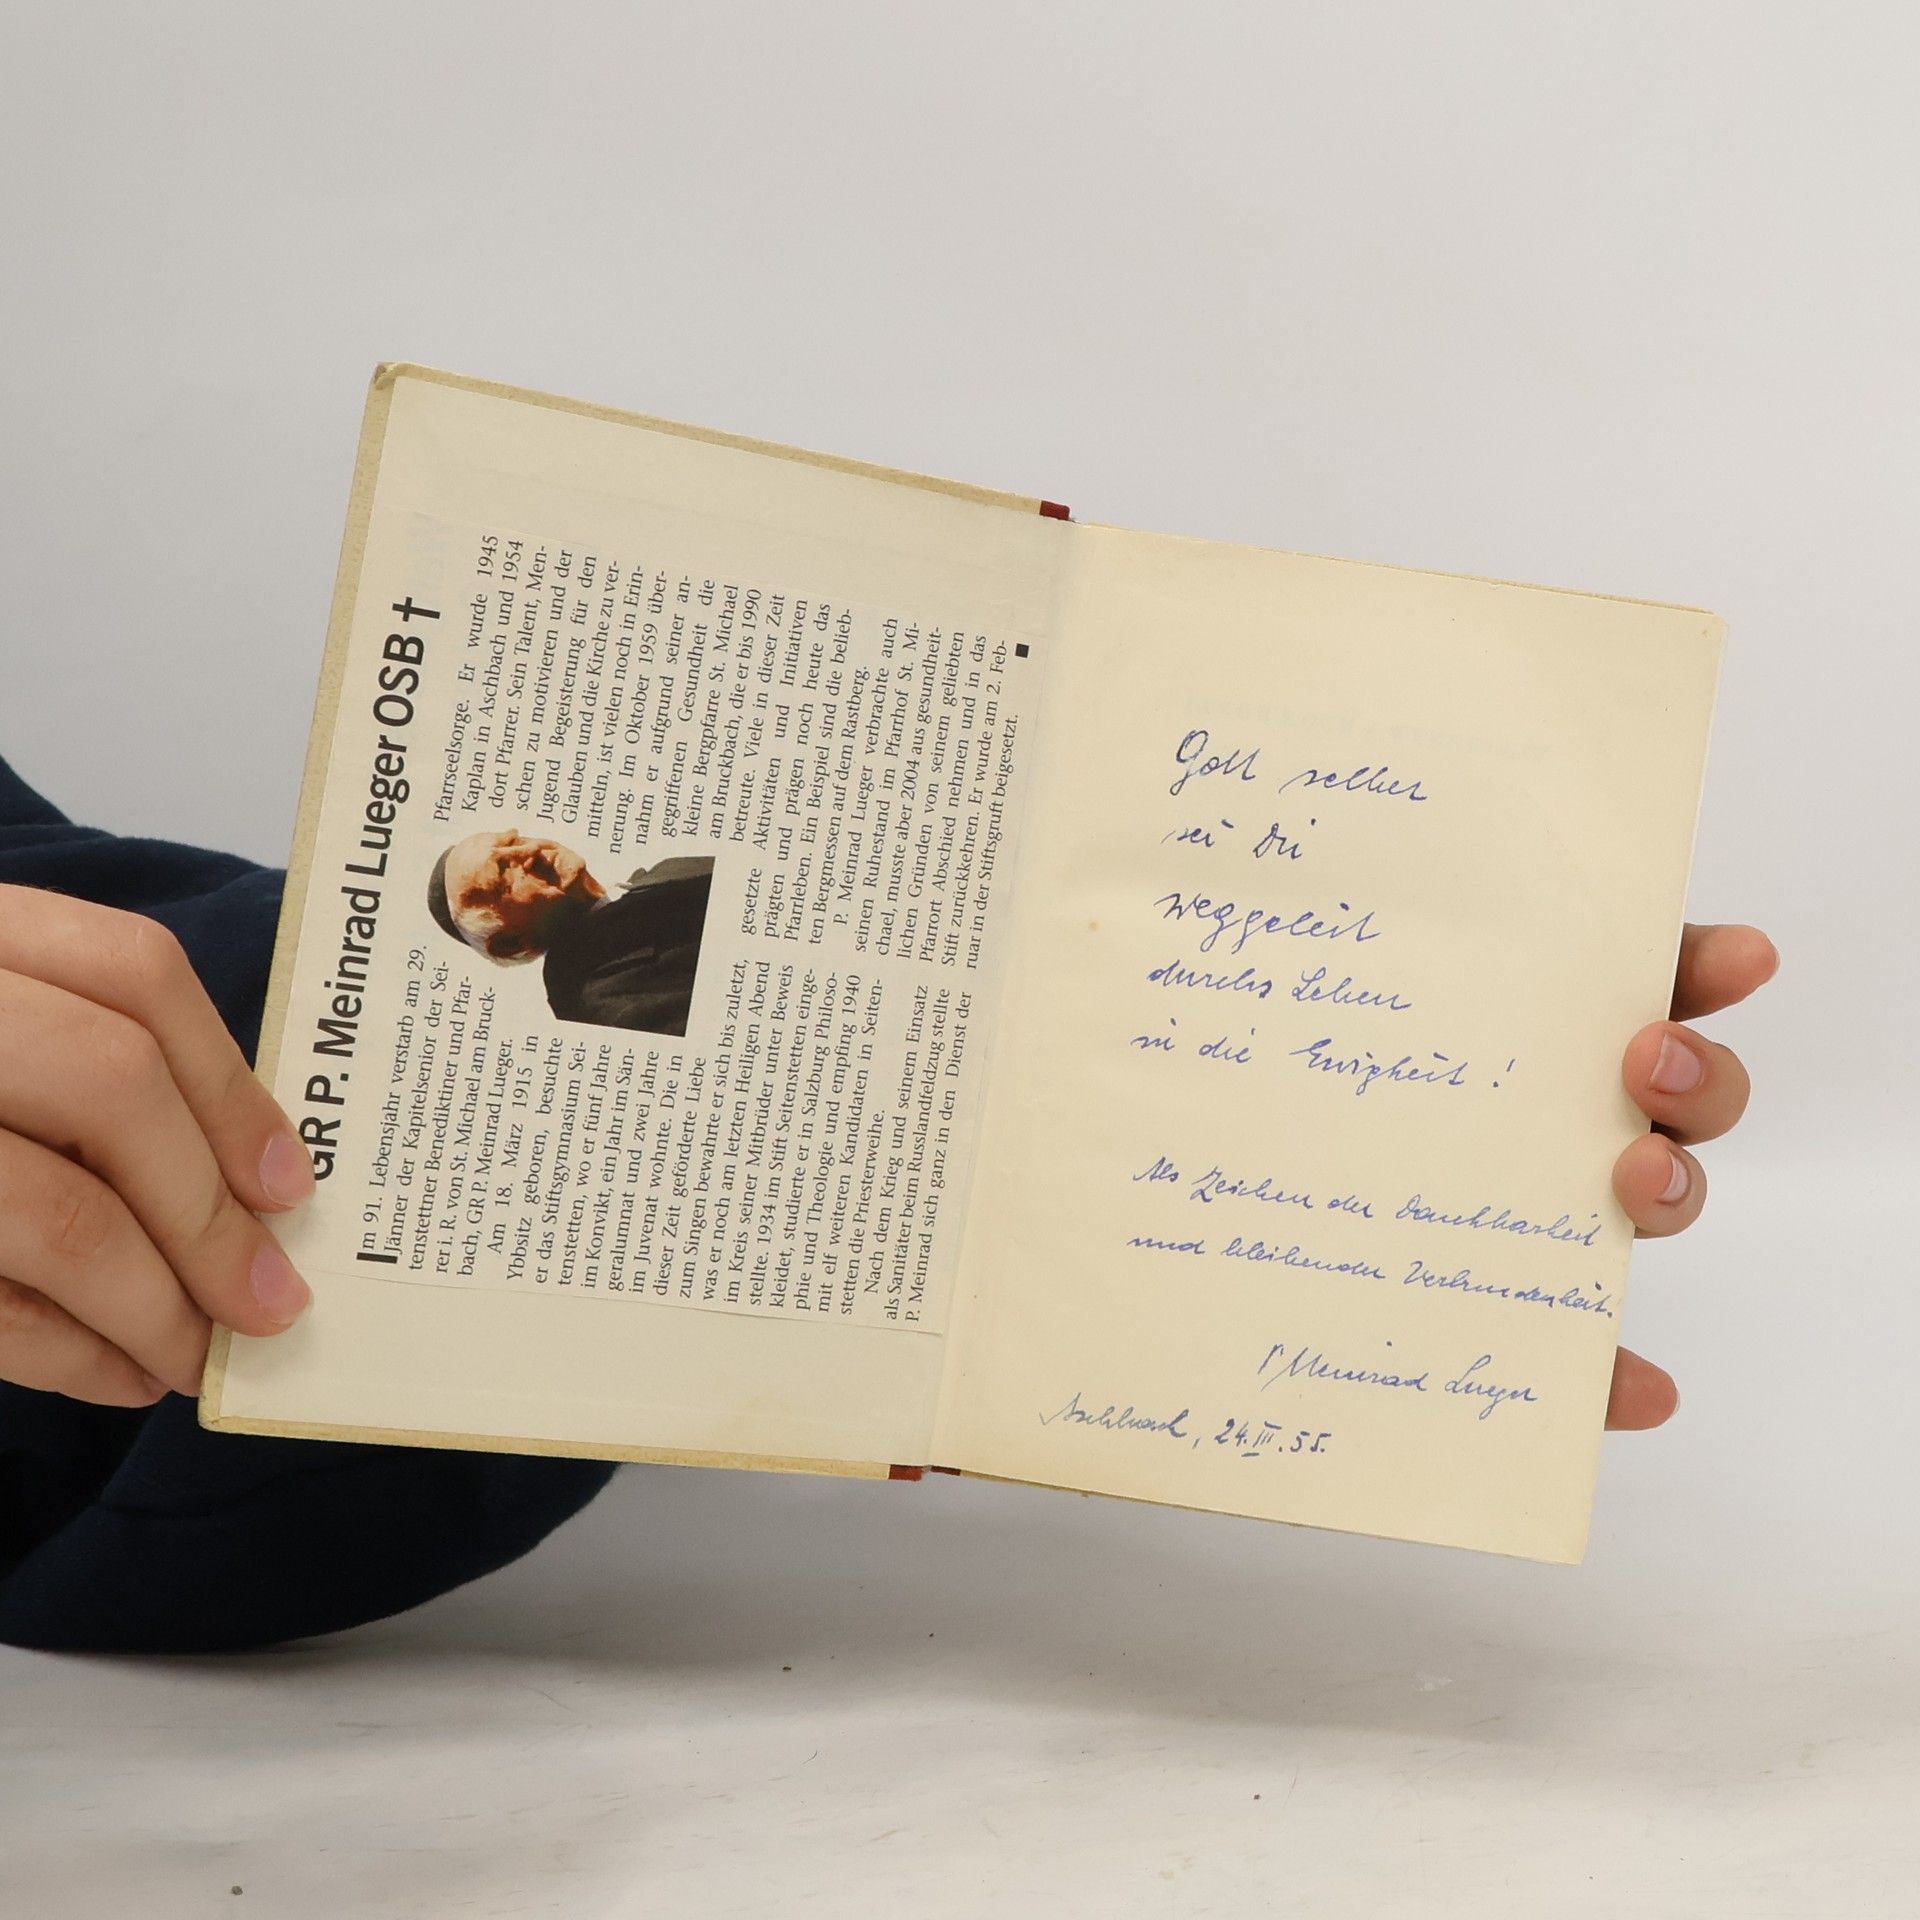 GR P. Meinrad Lueger OSB †
Im 91. Lebensjahr verstarb am 29.
Jänner der Kapitelsenior der Sei-
tenstettner Benediktiner und Pfar-
rer i. R. von St. Michael am Bruck-
bach, GR P. Meinrad Lueger.
Am 18. März 1915 in
Ybbsitz geboren, besuchte
er das Stiftsgymnasium Sei-
tenstetten, wo er fünf Jahre
im Konvikt, ein Jahr im Sän-
geralumnat und zwei Jahre
im Juvenat wohnte. Die in
dieser Zeit geförderte Liebe
zum Singen bewahrte er sich bis zuletzt,
was er noch am letzten Heiligen Abend
im Kreis seiner Mitbrüder unter Beweis
stellte. 1934 im Stift Seitenstetten einge-
kleidet, studierte er in Salzburg Philoso-
phie und Theologie und empfing 1940
mit elf weiteren Kandidaten in Seiten-
stetten die Priesterweihe.
Nach dem Krieg und seinem Einsatz
als Sanitäter beim Russlandfeldzug stellte
P. Meinrad sich ganz in den Dienst der
Pfarrseelsorge. Er wurde 1945
Kaplan in Aschbach und 1954
dort Pfarrer. Sein Talent, Men-
schen zu motivieren und der
Jugend Begeisterung für den
Glauben und die Kirche zu ver-
mitteln, ist vielen noch in Erin-
nerung. Im Oktober 1959 über-
nahm er aufgrund seiner an-
gegriffenen Gesundheit die
kleine Bergpfarre St. Michael
am Bruckbach, die er bis 1990
betreute. Viele in dieser Zeit
gesetzte Aktivitäten und Initiativen
prägten und prägen noch heute das
Pfarrleben. Ein Beispiel sind die belieb-
ten Bergmessen auf dem Rastberg.
P. Meinrad Lueger verbrachte auch
seinen Ruhestand im Pfarrhof St. Mi-
chael, musste aber 2004 aus gesundheit-
lichen Gründen von seinem geliebten
Pfarrort Abschied nehmen und in das
Stift zurückkehren. Er wurde am 2. Feb-
ruar in der Stiftsgruft beigesetzt. ■
Gott selber
sei Dir
Weggeleit
durchs Leben
in die Ewigkeit !
Als Zeichen der Dankbarkeit
und bleibender Verbundenheit.
P Meinrad Lueger
Aschbach, 24.III.55.